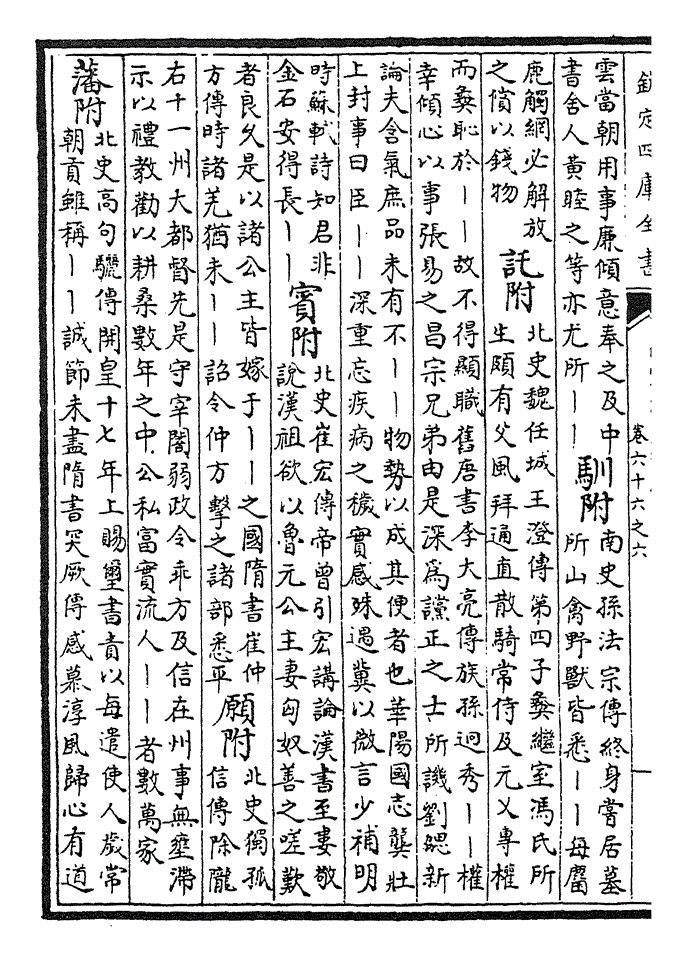 欽定四庫全書
卷六十六之六
雲當朝用事廉傾意奉之及中
書舍人黃睦之等亦尤所｜｜
馴附
南史孫法宗傳終身嘗居墓
所山禽野獸皆悉｜｜每麕
鹿觸網必解放
之償以錢物
託附
北史魏任城王澄傳第四子彝繼室馮氏所
生頗有父風拜通直散騎常侍及元乂專權
而彝恥於｜｜故不得顯職舊唐書李大亮傳族孫迥秀｜｜權
幸傾心以事張易之昌宗兄弟由是深為讜正之士所譏劉勰新
論夫含氣庶品未有不｜｜物勢以成其便者也華陽國志龔壯
上封事曰臣｜｜深重忘疾病之穢實感殊遇冀以微言少補明
時蘇軾詩知君非
金石安得長｜｜
賓附
北史崔宏傳帝曾引宏講論漢書至婁敬
說漢祖欲以魯元公主妻匈奴善之嗟歎
者良久是以諸公主皆嫁于｜｜之國隋書崔仲
方傳時諸羌猶未｜｜詔令仲方擊之諸部悉平
願附
北史獨孤
信傳除隴
右十一州大都督先是守宰闇弱政令乖方及信在州事無壅滯
示以禮教勸以耕桑數年之中公私富實流人｜｜者數萬家
藩附
北史高句驪傳開皇十七年上賜璽書責以每遣使人歲常
朝貢雖稱｜｜誠節未盡隋書突厥傳感慕淳風歸心有道